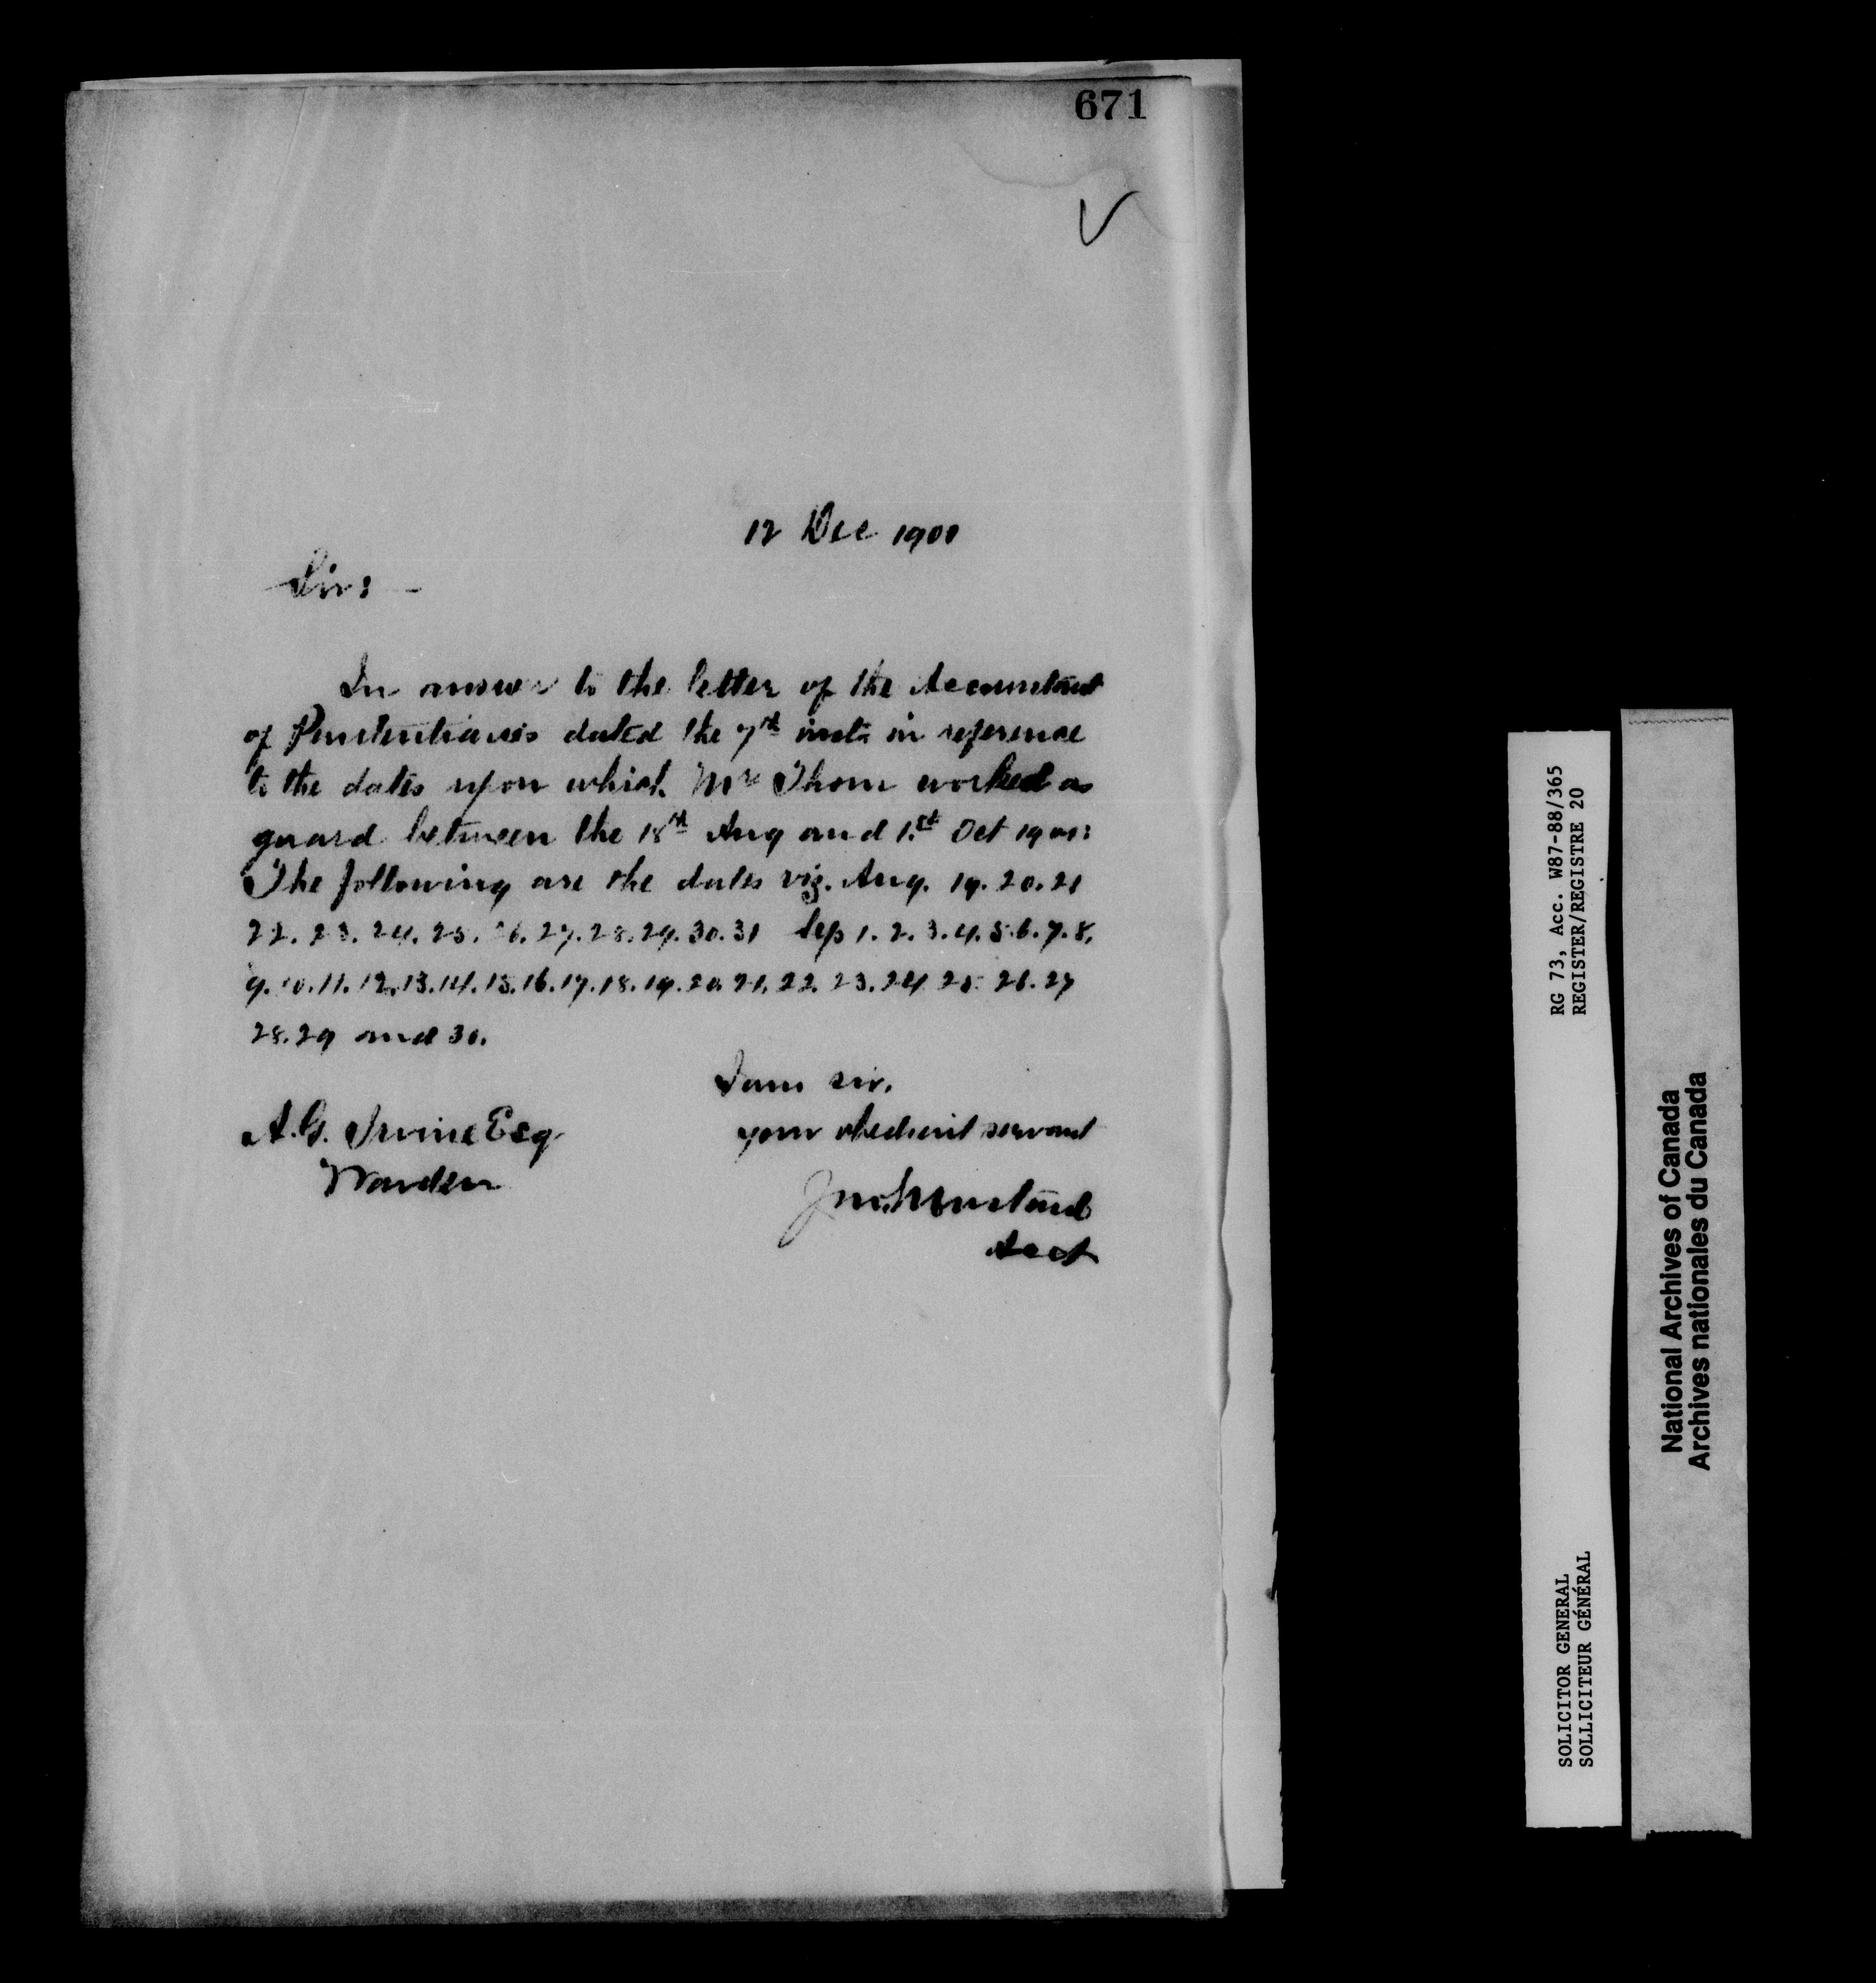 671
12 Dec 1900
Sir: -
In answer to the letter of the Accountant
of Penitentiaries dated the 7th inst. in reference
to the dates upon which Mr Thom worked as
guard between the 18th Aug and 1st Oct 1900:
The following are the dates viz. Aug. 19. 20. 21
22. 23. 24. 25. 26. 27. 28. 29. 30. 31 Sep 1. 2. 3. 4. 5. 6. 7. 8.
9. 10. 11. 12. 13. 14. 15. 16. 17. 18. 19. 20. 21. 22. 23. 24 25. 26. 27
28. 29 and 30.
I am sir,
your obedient servant
A.G. Irvine Esq
Warden
Jno. Mustard
Acct
RG 73, Acc. W87-88/365
REGISTER/REGISTRE 20
SOLICITOR GENERAL
SOLLICITEUR GÉNÉRAL
National Archives of Canada
Archives nationales du Canada